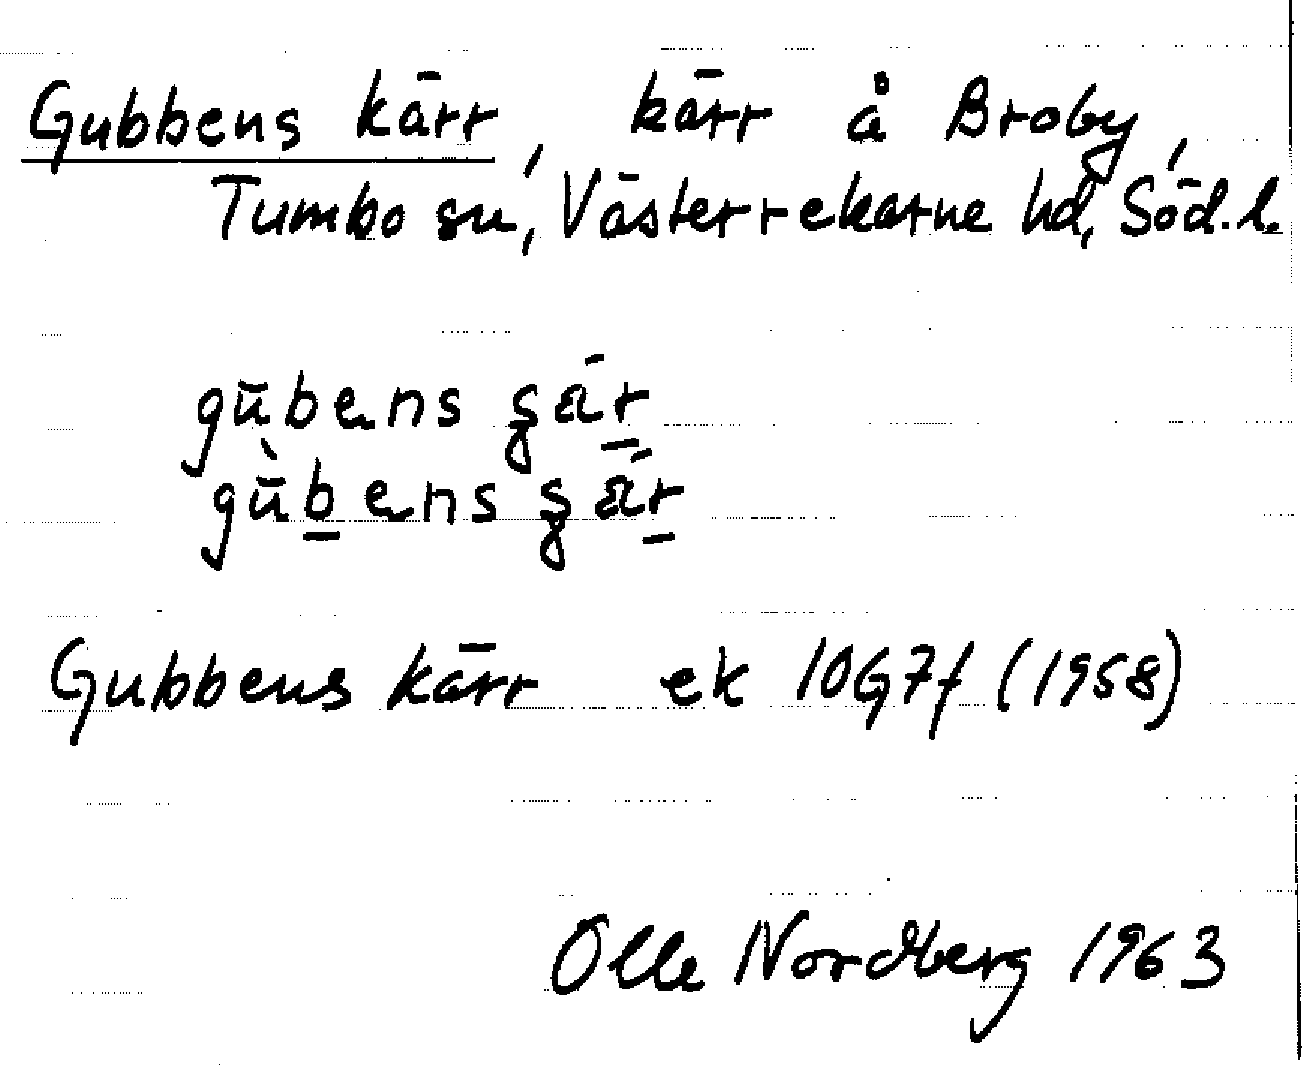 Gubbens kärr, kärr å Broby,
Tumbo sn, Västerrekarne hd, Söd.l.
gūbens şä́r̲
gū̀b̲ens şä́r̲
Gubbens kärr ek 10G7f (1958)
Olle Nordberg 1963